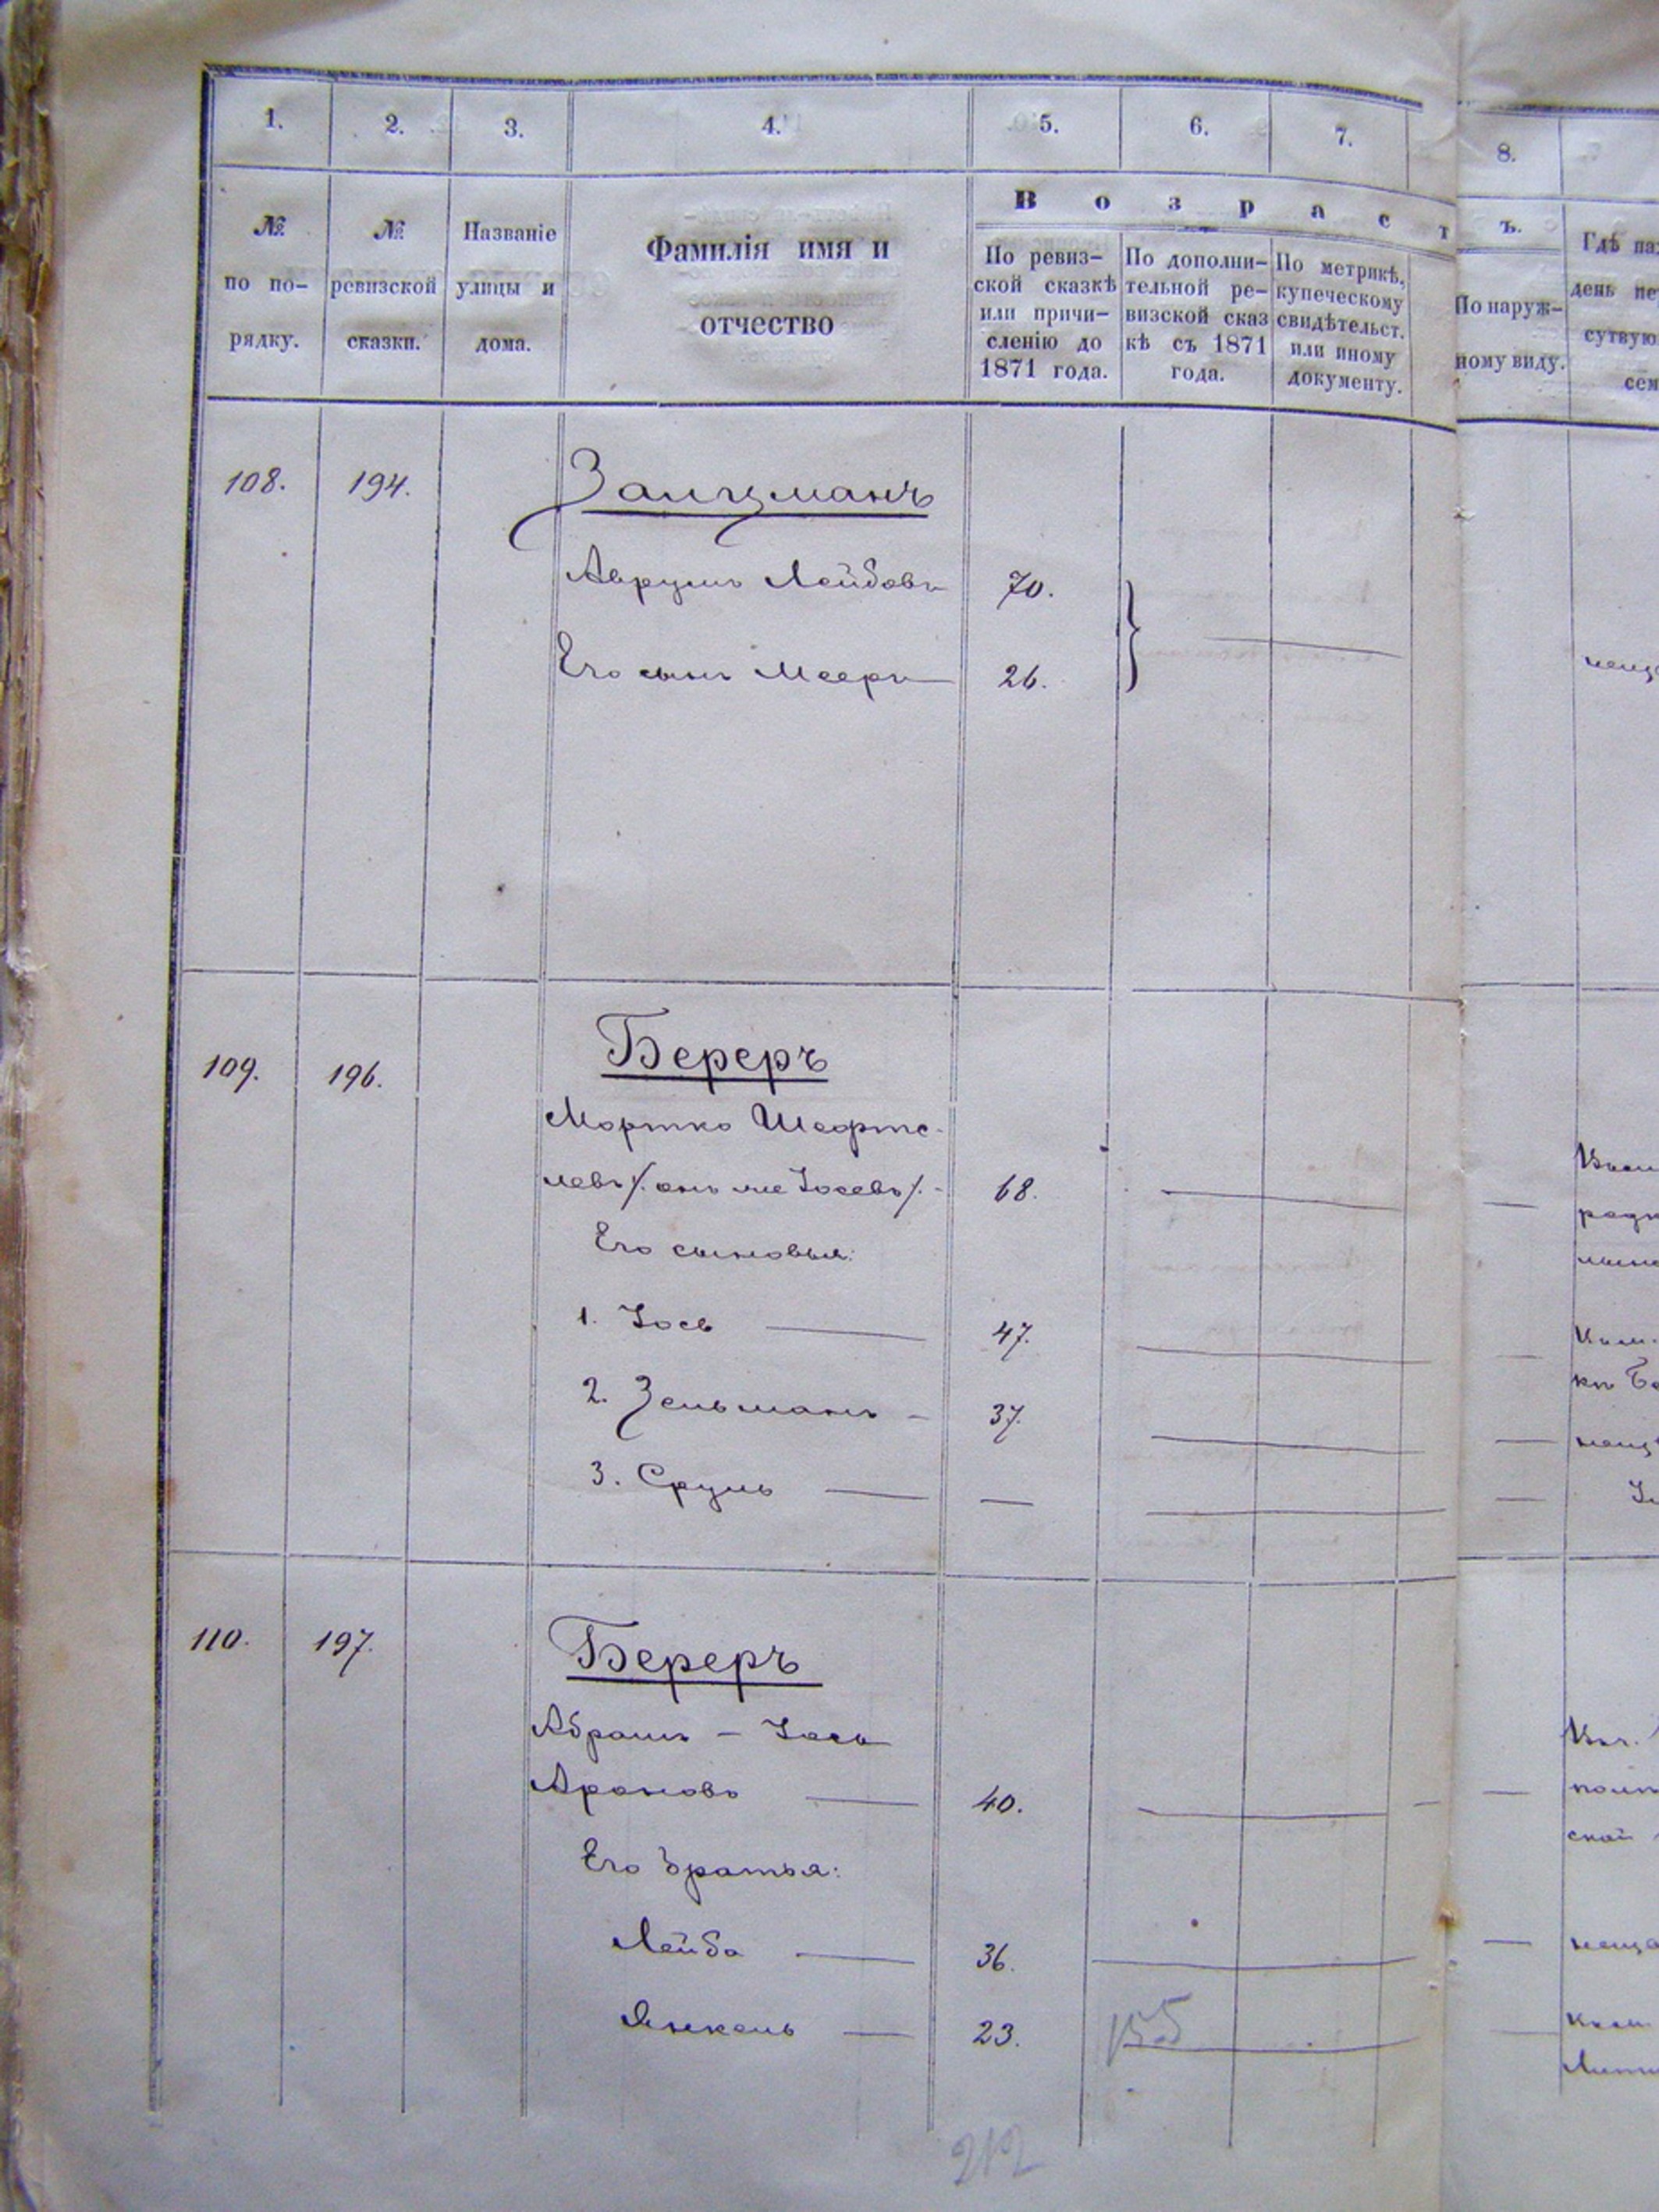 1. 2. 3. 4. 5. 6. 7. 8.
В о з р а с т ъ.
№ по по-
рядку.
№
ревизской
сказки.
Названіе
улицы и
дома.
Фамилія имя и
отчество
По ревиз-
ской сказкѣ
или причи-
сленію до
1871 года.
По дополни-
тельной ре-
визской сказ
кѣ съ 1871
года.
По метрикѣ,
купеческому
свидѣтельст.
или иному
документу.
По наруж-
ному виду.
Гдѣ
день
108. 194. Залцманъ
Аврумъ Лейбовъ 70.
Его сынъ Мееръ 26.
109. 196. Береръ
Мортко Шефте-
левъ /. онъ же Іосевъ /. 68.
Его сыновья:
1. Іось 47.
2. Зельманъ 37.
3. Сруль —
110. 197. Береръ
Абрамъ - Іось
Ароновъ 40.
Его братья:
Лейба 36.
Янкель 23.
212